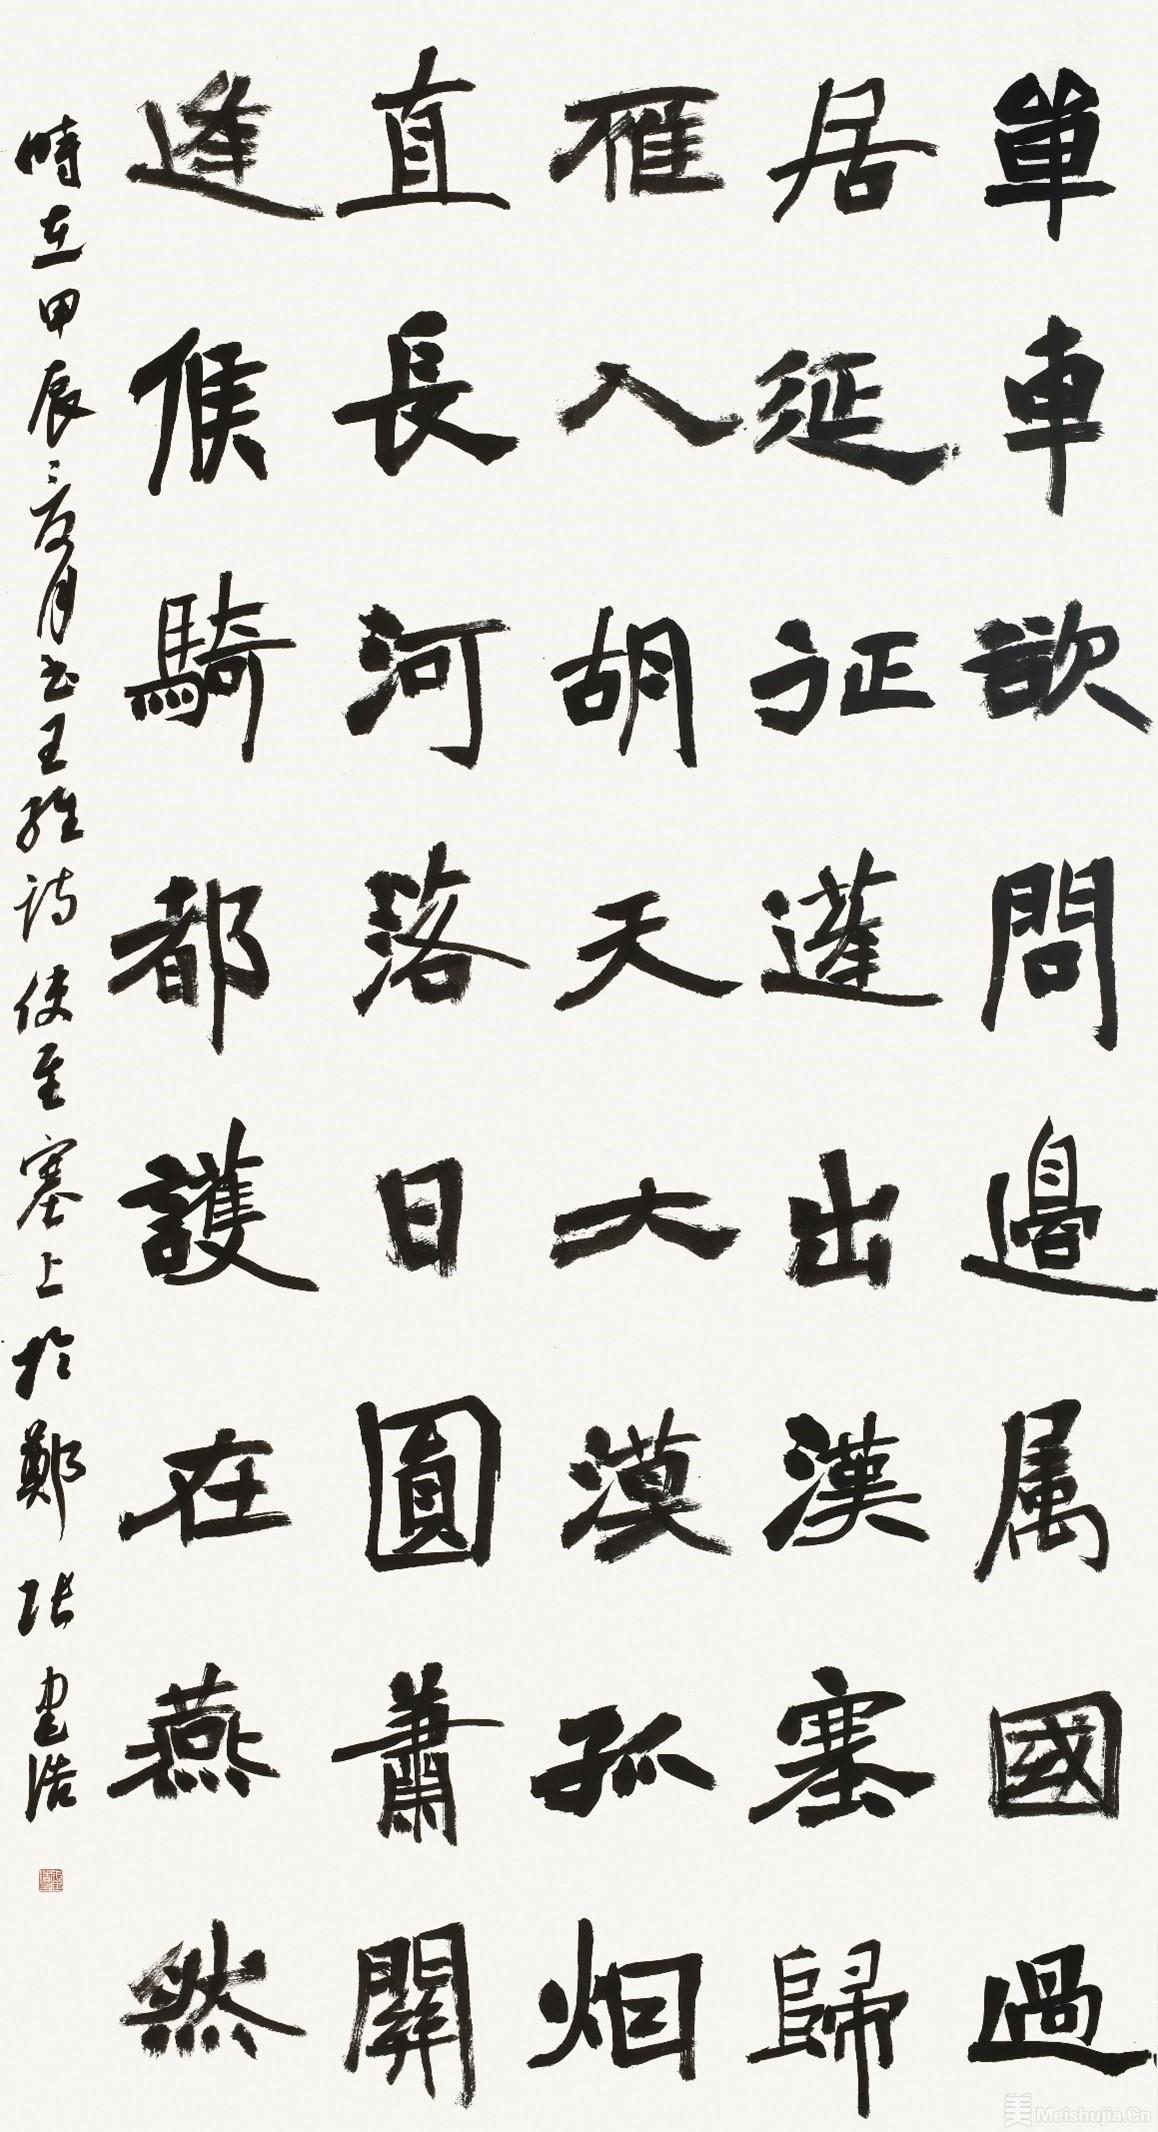 單車欲問邊属國過
居延征蓬出漢塞歸
雁入胡天大漠孤烟
直長河落日圓蕭關
逢候騎都護在燕然
時在甲辰三夏月书王維诗使至塞上於鄭張建浩
Meishujia.Cn